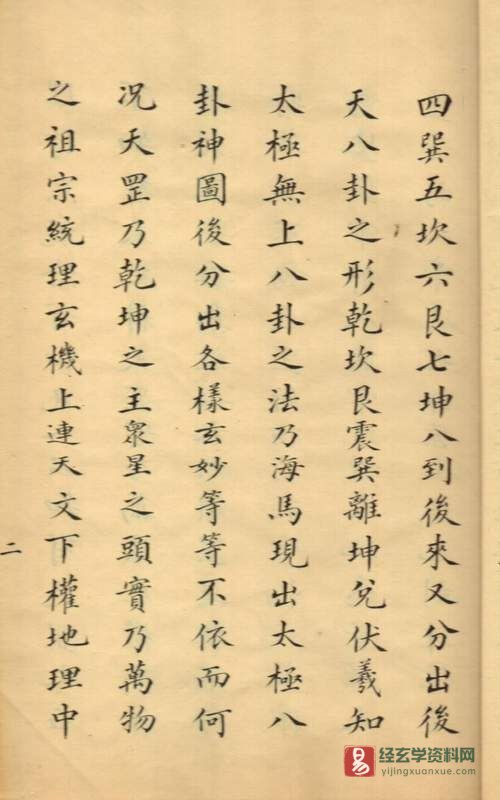 四巽五坎六艮七坤八到後來又分出後
天八卦之形乾坎艮震巽離坤兌伏羲知
太極無上八卦之法乃海馬現出太極八
卦神圖後分出各樣玄妙等等不依而何
况天罡乃乾坤之主衆星之頭實乃萬物
之祖宗統理玄機上連天文下權地理中
二
易
经玄学资料网
yijingxuanxue.com